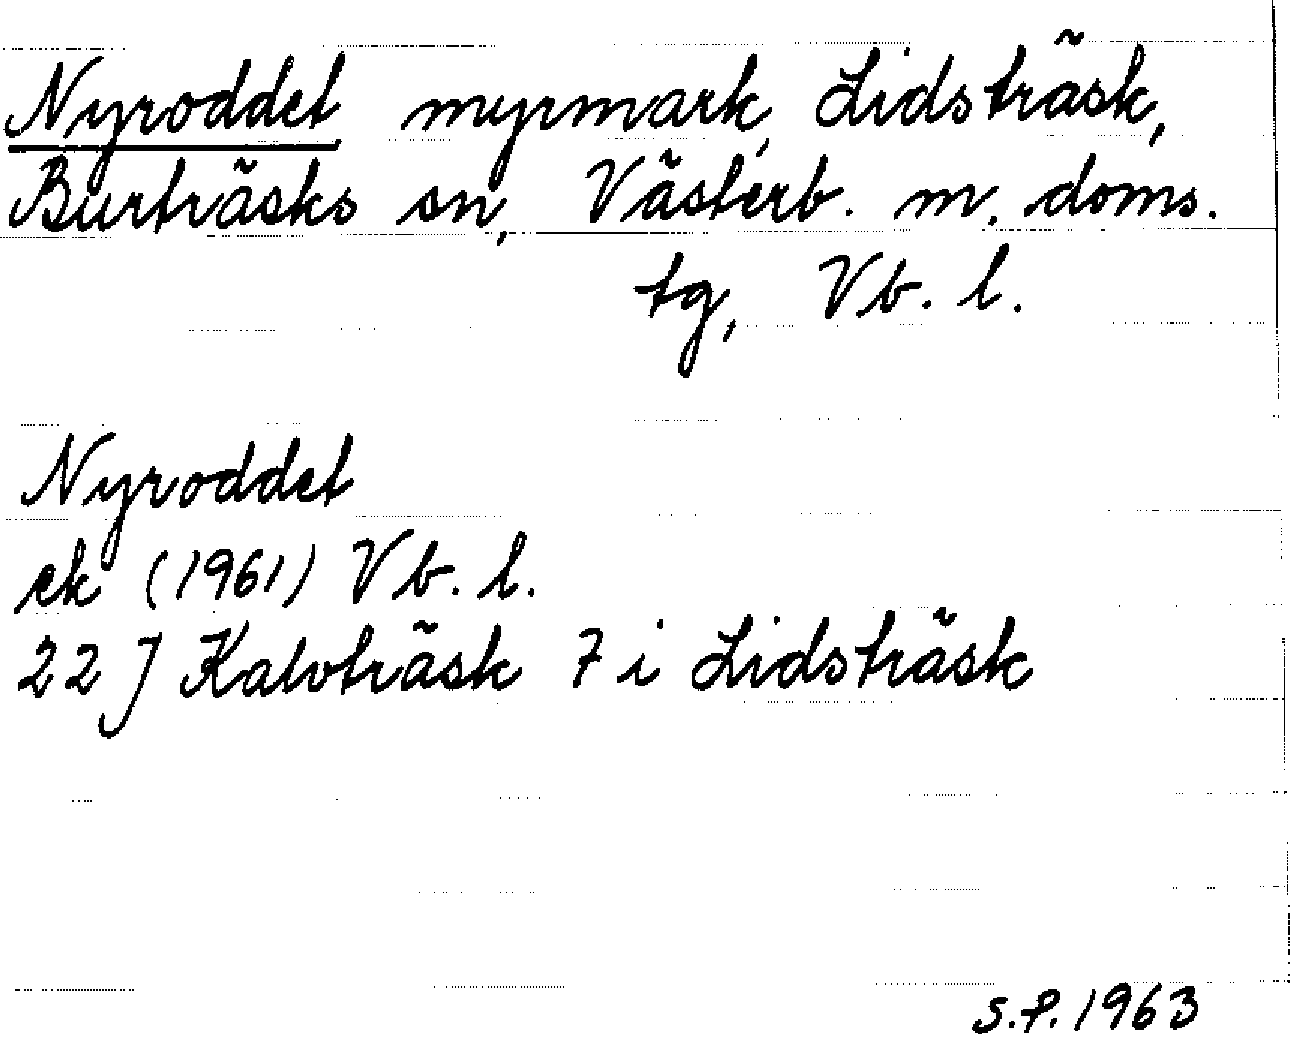 Nyroddet, myrmark, Lidsträsk,
Burträsks sn, Västerb. m. doms.
tg, Vb. l.
Nyroddet
ek (1961) Vb. l.
22 J Kalvträsk 7 i Lidsträsk
S.P. 1963